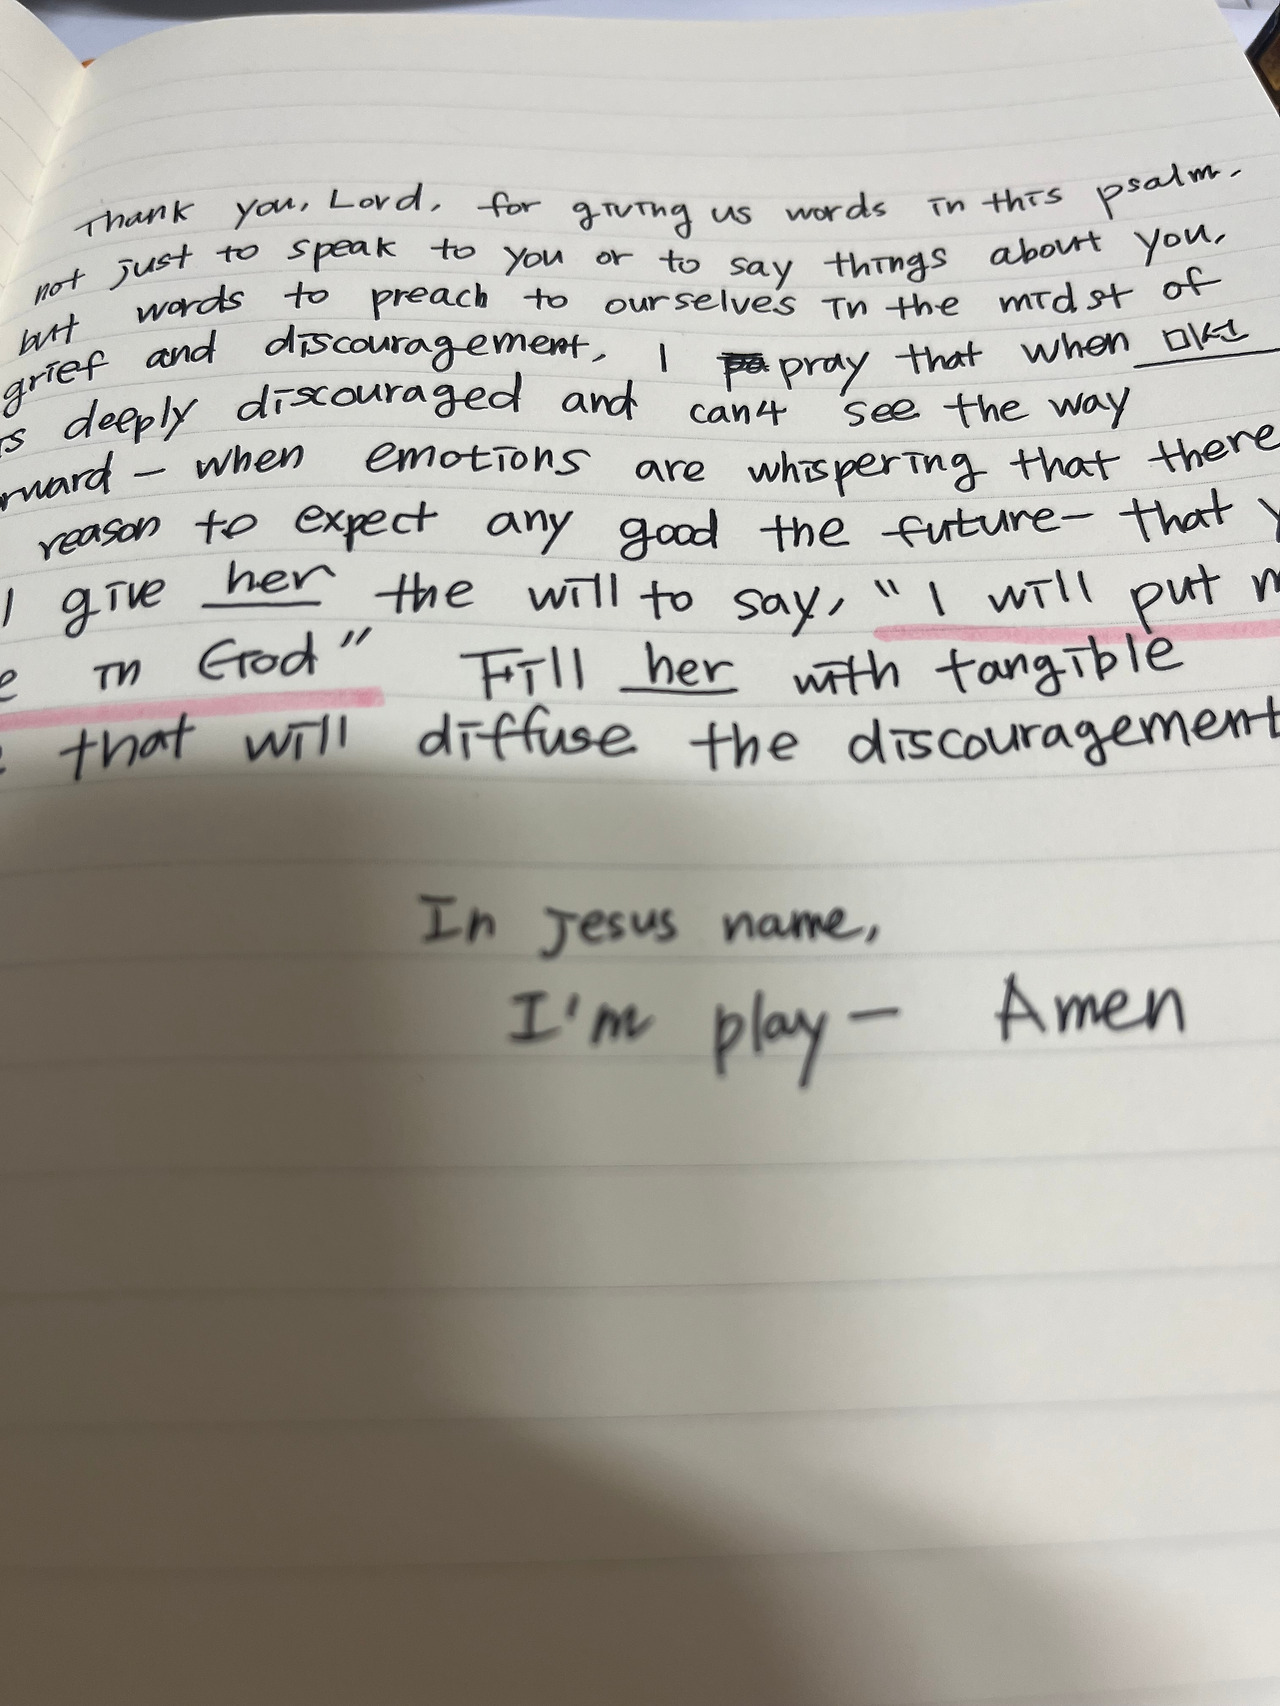 Thank you, Lord, for giving us words in this psalm.
not just to speak to you or to say things about you,
but words to preach to ourselves in the midst of
grief and discouragement, I pray that when 미선
s deeply discouraged and can4 see the way
rward - when emotions are whispering that there
reason to expect any good the future - that y
l give her the will to say, "I will put m
e in God" Fill her with tangible
e that will diffuse the discouragement
In Jesus name,
I'm play - Amen